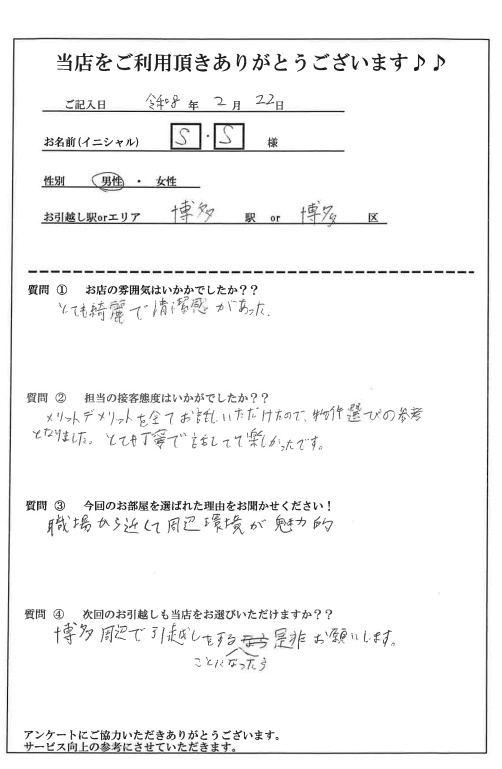 当店をご利用頂きありがとうございます♪♪
ご記入日 令和8年 2月 22日
お名前(イニシャル) S・S 様
性別 男性 ・ 女性
お引越し駅orエリア 博多 駅 or 博多 区
質問 ① お店の雰囲気はいかかでしたか？？
とても綺麗で清潔感があった.
質問 ② 担当の接客態度はいかがでしたか？？
メリットデメリットを全てお話しいただけたので、物件選びの参考
となりました。とても丁寧で話してて楽しかったです。
質問 ③ 今回のお部屋を選ばれた理由をお聞かせください！
職場から近くて周辺環境が魅力的
質問 ④ 次回のお引越しも当店をお選びいただけますか？？
博多周辺で引越しをする是非お願いします。
ことになったら
アンケートにご協力いただきありがとうございます。
サービス向上の参考にさせていただきます。